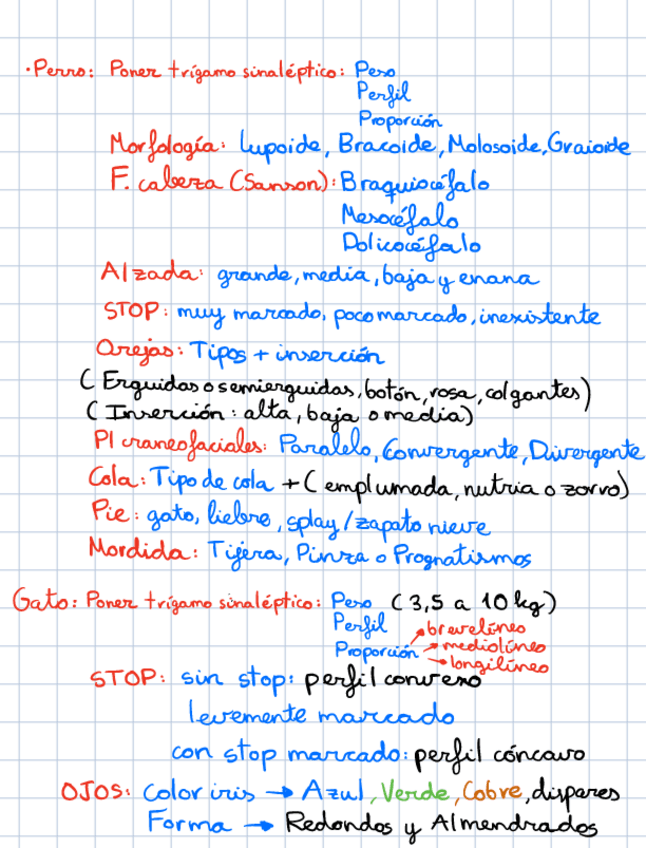 · Perro: Poner trígamo sinaléptico: Peso
Perfil
Proporción
Morfología: Lupoide, Bracoide, Molosoide, Graioide
F. cabeza (Sanson): Braquiocéfalo
Mesocéfalo
Dolicocéfalo
Alzada: grande, media, baja y enana
STOP: muy marcado, poco marcado, inexistente
Orejas: Tipos + inserción
( Erguidas o semierguidas, botón, rosa, colgantes)
( Inserción: alta, baja o media)
Pl craneofaciales: Paralelo, Convergente, Divergente
Cola: Tipo de cola + ( emplumada, nutria o zorro)
Pie: gato, liebre, splay / zapato nieve
Mordida: Tijera, Pinza o Prognatismos
Gato: Poner trígamo sinaléptico: Peso (3,5 a 10 kg)
Perfil
Proporción → brevelíneo
→ mediolíneo
→ longilíneo
STOP: sin stop: perfil convexo
levemente marcado
con stop marcado: perfil cóncavo
OJOS: color iris → Azul, Verde, Cobre, dispares
Forma → Redondos y Almendrados